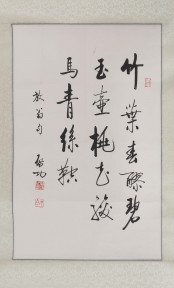 竹葉春醪碧
玉壺桃花駿
馬青絲鞚
放翁句 啓功